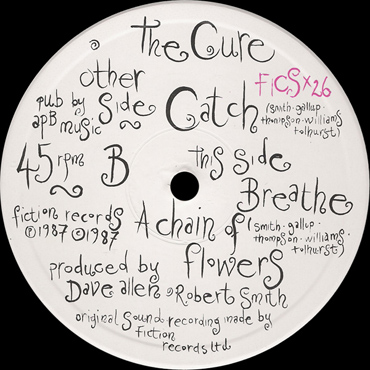 the Cure
other side Catch
FICSX26
pub by
apB music
(smith·gallup·
thompson·williams·
tolhurst)
45 rpm B
this side
Breathe
fiction records
℗1987 ©1987
A chain of flowers
(smith·gallup·
thompson·williams·
tolhurst)
produced by
Dave allen & Robert Smith
original sound recording made by
fiction
records ltd.